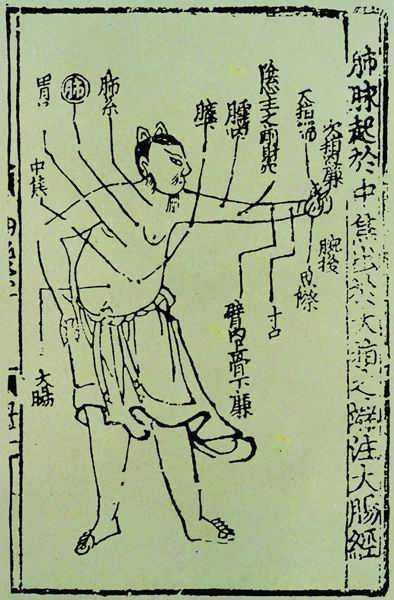 肺脉起於中焦出於大指之端注大腸經
次指內廉
大指端
臑內
肺系
肺
胃口
中焦
腕後
魚際
寸口
臂內上骨下廉
大腸